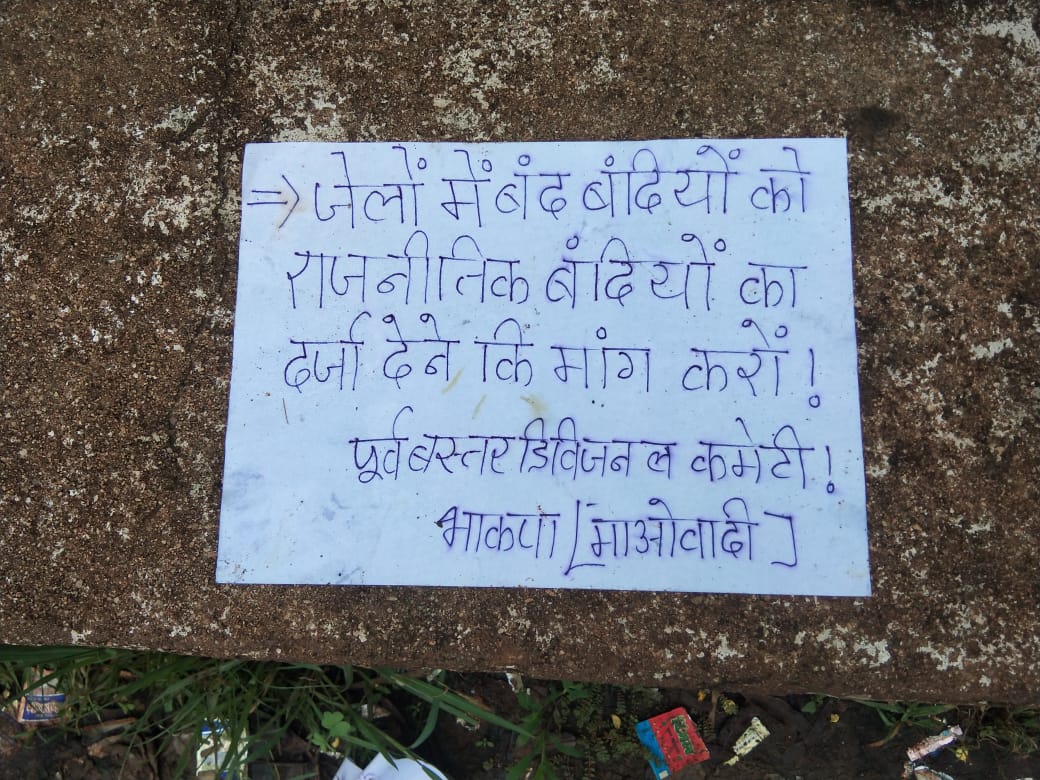 => जेलों में बंद बंदियों को
राजनीतिक बंदियों का
दर्जा देने कि मांग करों !
पूर्व बस्तर डिविजनल कमेटी !
भाकपा [माओवादी]